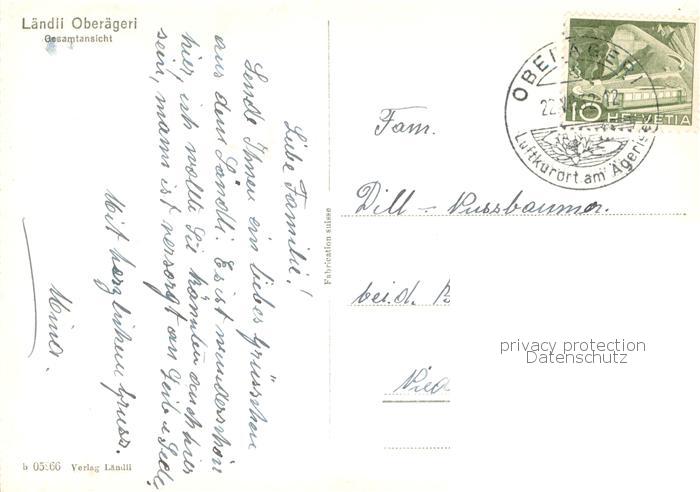 Ländli Oberägeri
Gesamtansicht
Liebe Familie!
Sende Ihnen ein liebes Grüsschen
aus dem Ländli. Es ist wunderschön
hier, ich wollte Sie könnten auch hier
sein, mann ist versorgt an Leib u Seele,
Mit herzlichem Gruss.
b 05866 Verlag Ländli
Fabrication suisse
OBERÄGERI
22.
12
Luftkurort am Ägerisee
10 HELVETIA
Fam.
Dill-Nussbaumer.
beid. B
privacy protection
Datenschutz
Nied